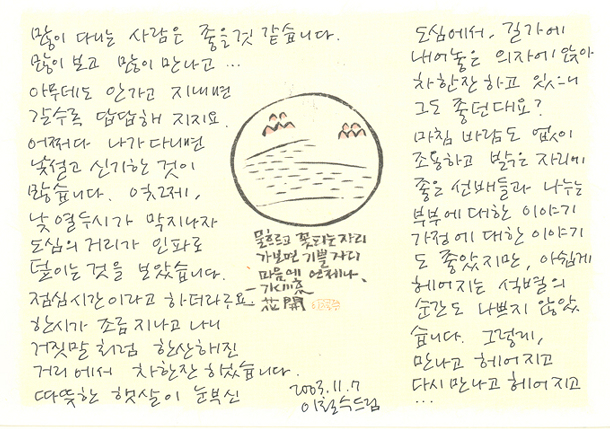 많이 다니는 사람은 좋을것 같습니다.
많이 보고 많이 만나고 …
아무데도 안가고 지내면
갈수록 답답해 지지요.
어쩌다 나가 다니면
낯설고 신기한 것이
많습니다. 엊그제,
낮 열두시가 막지나자
도심의 거리가 인파로
덮이는 것을 보았습니다.
점심시간이라고 하더라구요.
한시가 조금 지나고 나니
거짓말처럼 한산해진
거리에서 차한잔 하였습니다.
따뜻한 햇살이 눈부신
물흐르고 꽃피는 자리
가보면 기쁠 자리
마음에 언제나.
花開
2003.11.7
이철수드림
도심에서, 길가에
내어놓은 의자에 앉아
차한잔 하고 있으니
그도 좋던대요?
마침 바람도 없이
조용하고 밝은 자리에
좋은 선배들과 나누는
부부에 대한 이야기
가정에 대한 이야기
도 좋았지만, 아쉽게
헤어지는 석별의
순간도 나쁘지 않았
습니다. 그렇게,
만나고 헤어지고
다시 만나고 헤어지고
…